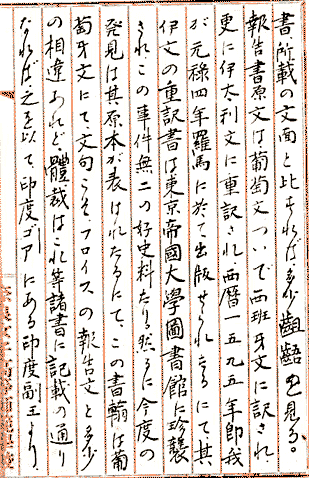 書所載の文面と比すれば、多少齟齬を見る。
報告書原文は葡萄文ついで西班牙文に訳され、
更に伊太利文に重訳され西暦一五九五年即我
が元禄四年羅馬に於て出版せられたるにて、其
伊文の重訳書は東京帝國大學圖書館に珍襲
され、この事件無二の好史料たり、然るに今度の
発見は其原本が表はれたるにて、この書翰は葡
萄牙文にて文句こそフロイスの報告文と多少
の相違あれど、體裁はこれ等諸書に記載の通り
なれば、之を以て印度ゴアにある印度副王より、